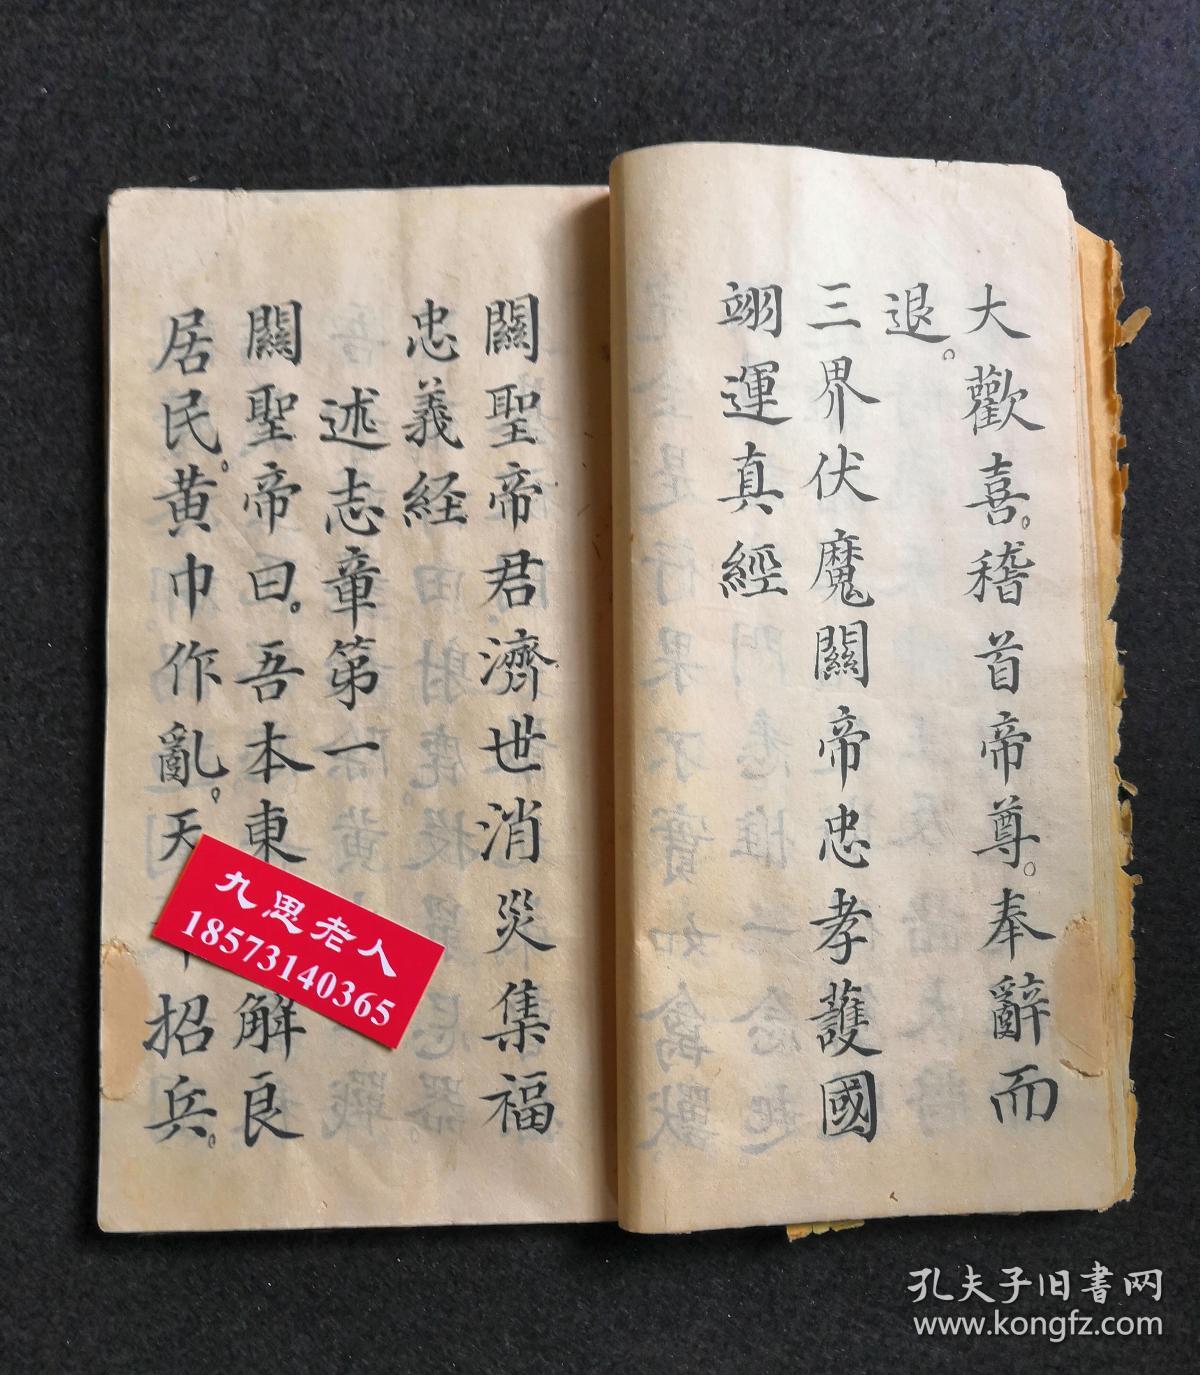 大歡喜。稽首帝尊。奉辭而
退。
三界伏魔關帝忠孝護國
翊運真經
關聖帝君濟世消災集福
忠義経
述志章第一
關聖帝曰。吾本東解良
居民。黄巾作亂。天招兵。
九思老人
18573140365
孔夫子旧书网
www.kongfz.com